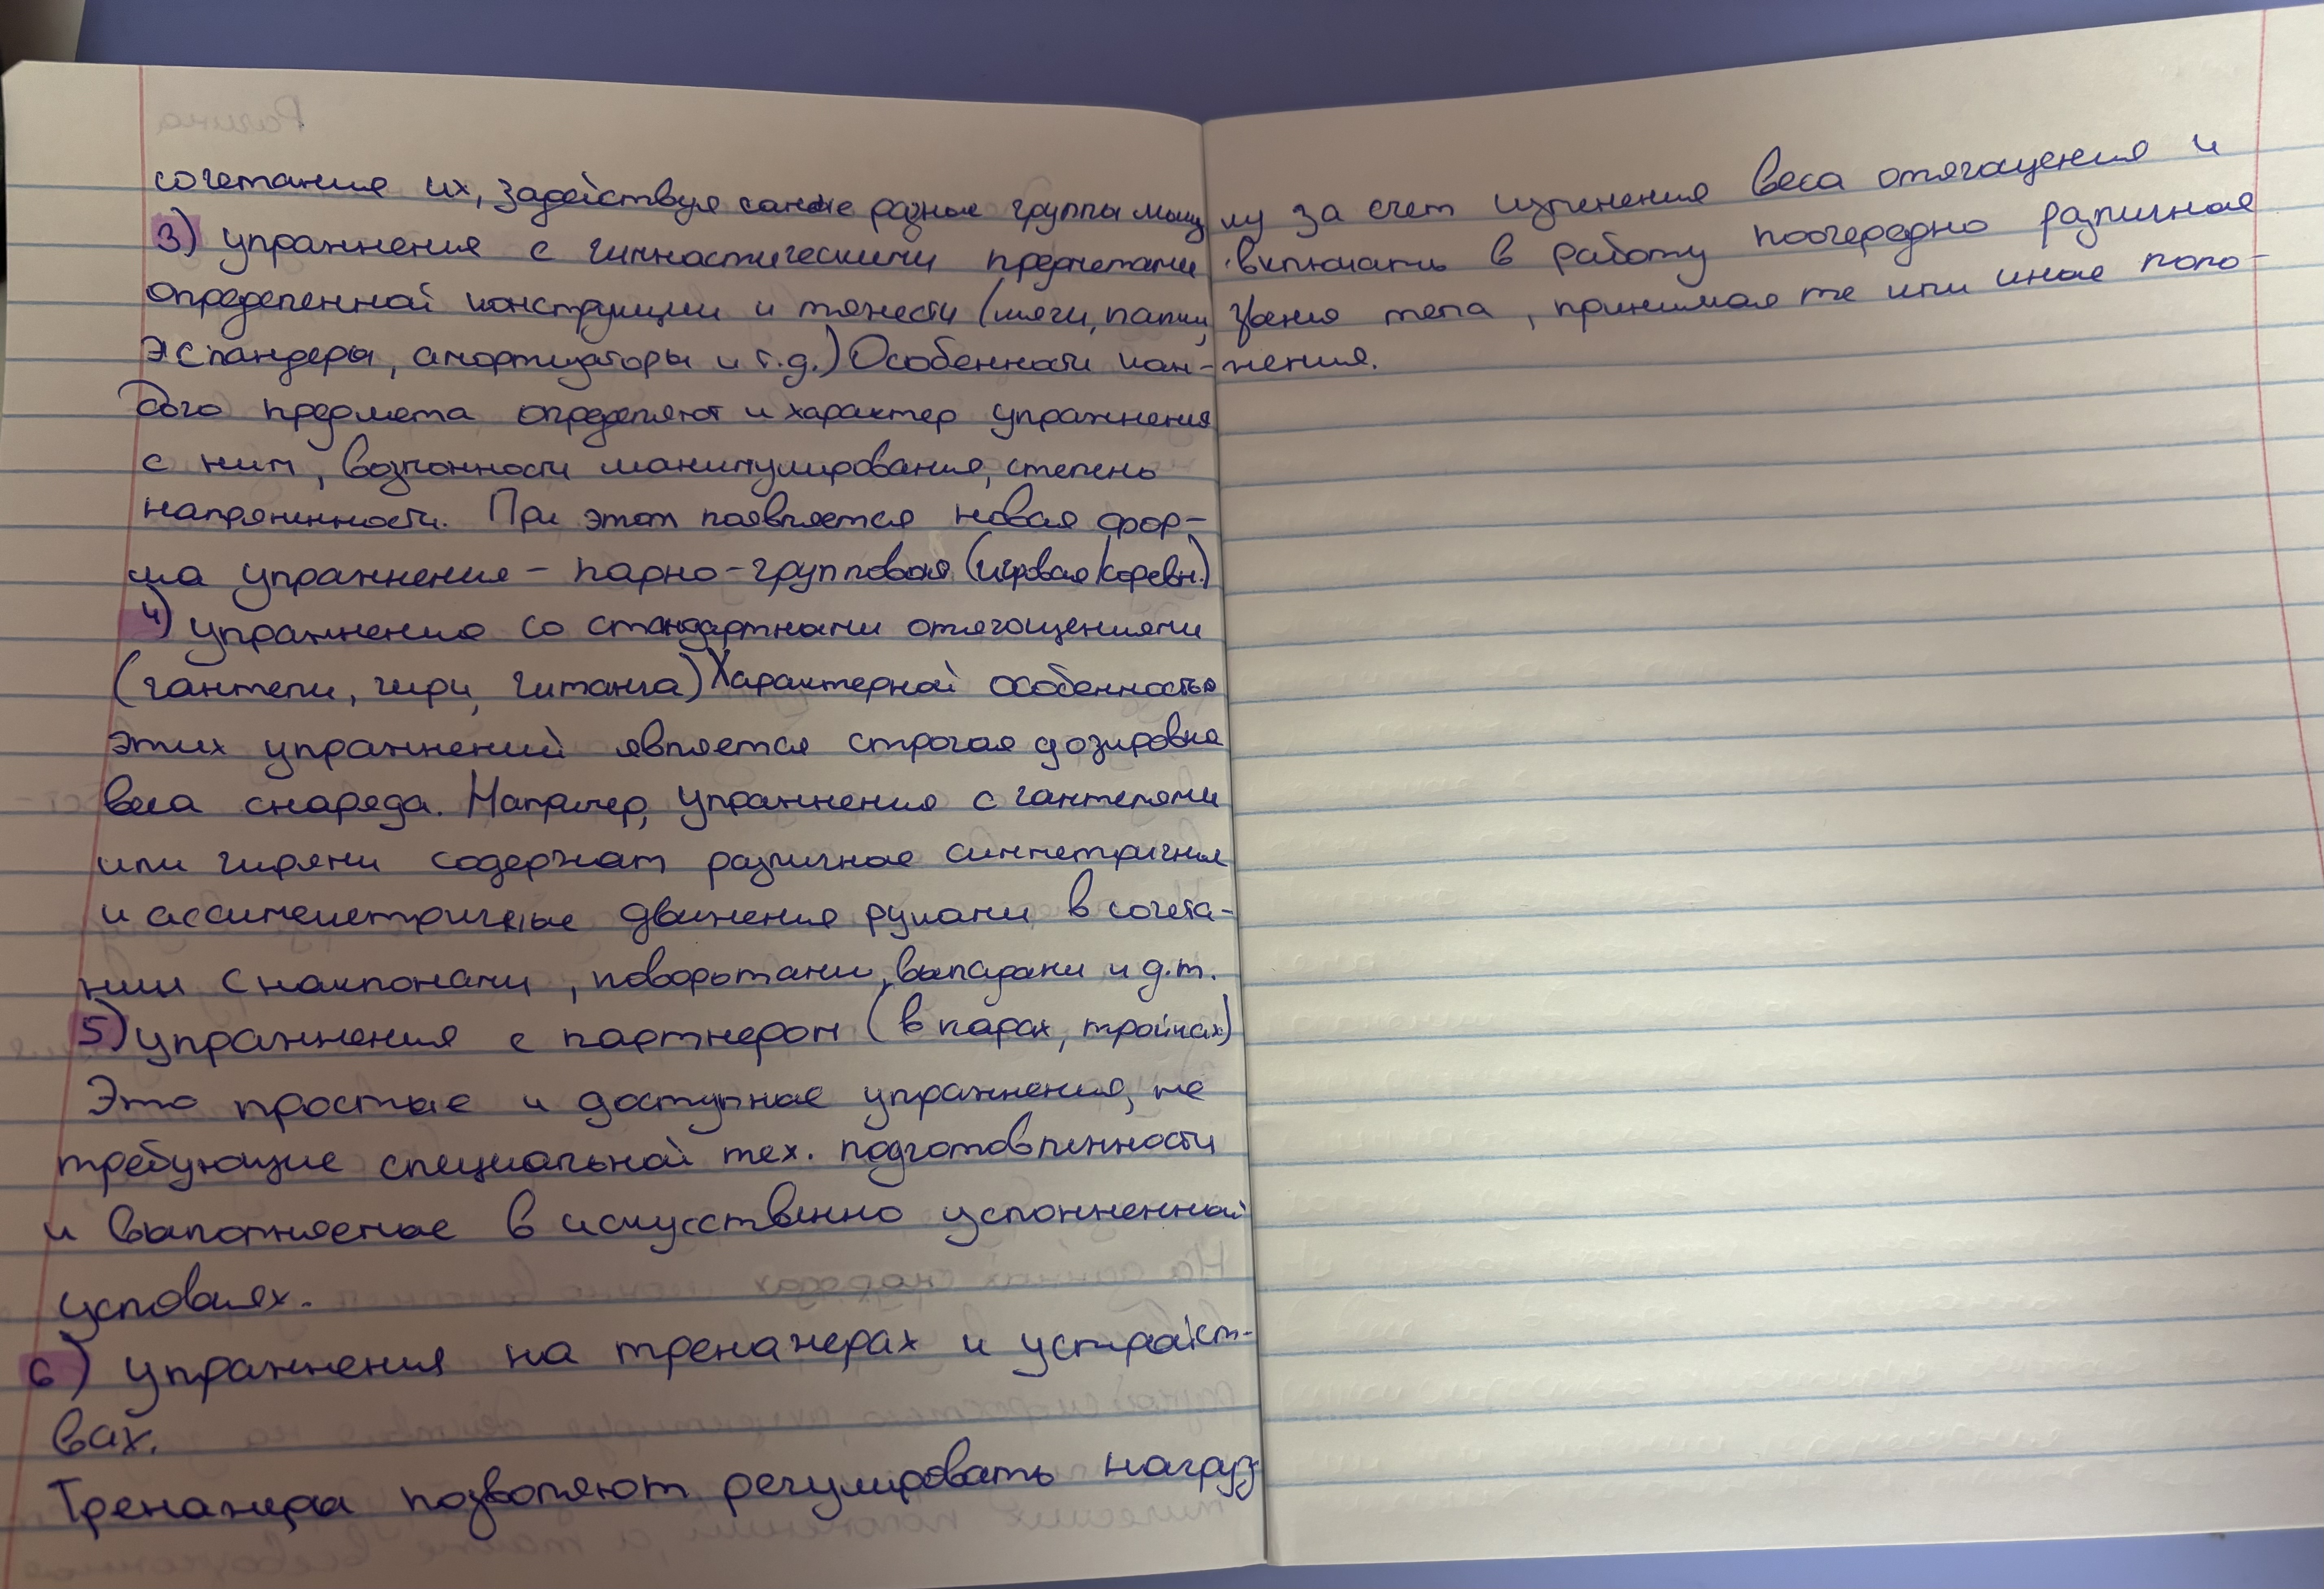 сочетание их, задействуя самые разные группы мышц
3) упражнения с гимнастическими предметами
определенной конструкции и тяжести (мячи, палки,
эспандеры, амортизаторы и т.д.) Особенности каж-
дого предмета определяют и характер упражнения
с ним, возможности манипулирования, степень
напряженности. При этом появляется новая фор-
ма упражнения - парно-групповая (игровая/соревн.)
4) упражнения со стандартными отягощениями
(гантели, гири, штанга) Характерной особенностью
этих упражнений является строгая дозировка
веса снаряда. Например, упражнения с гантелями
или гирями содержат различные симметричные
и ассимметричные движения руками в сочета-
нии с наклонами, поворотами, выпадами и д.т.
5) упражнения с партнером (в парах, тройках)
Это простые и доступные упражнения, не
требующие специальной тех. подготовленности
и выполняемые в искусственно усложненной
условиях.
6) упражнения на тренажерах и устройст-
вах.
Тренажеры позволяют регулировать нагруз
ку за счет изменения веса отягощения и
включать в работу поочередно различные
звения тела, принимая те или иные поло-
жения.